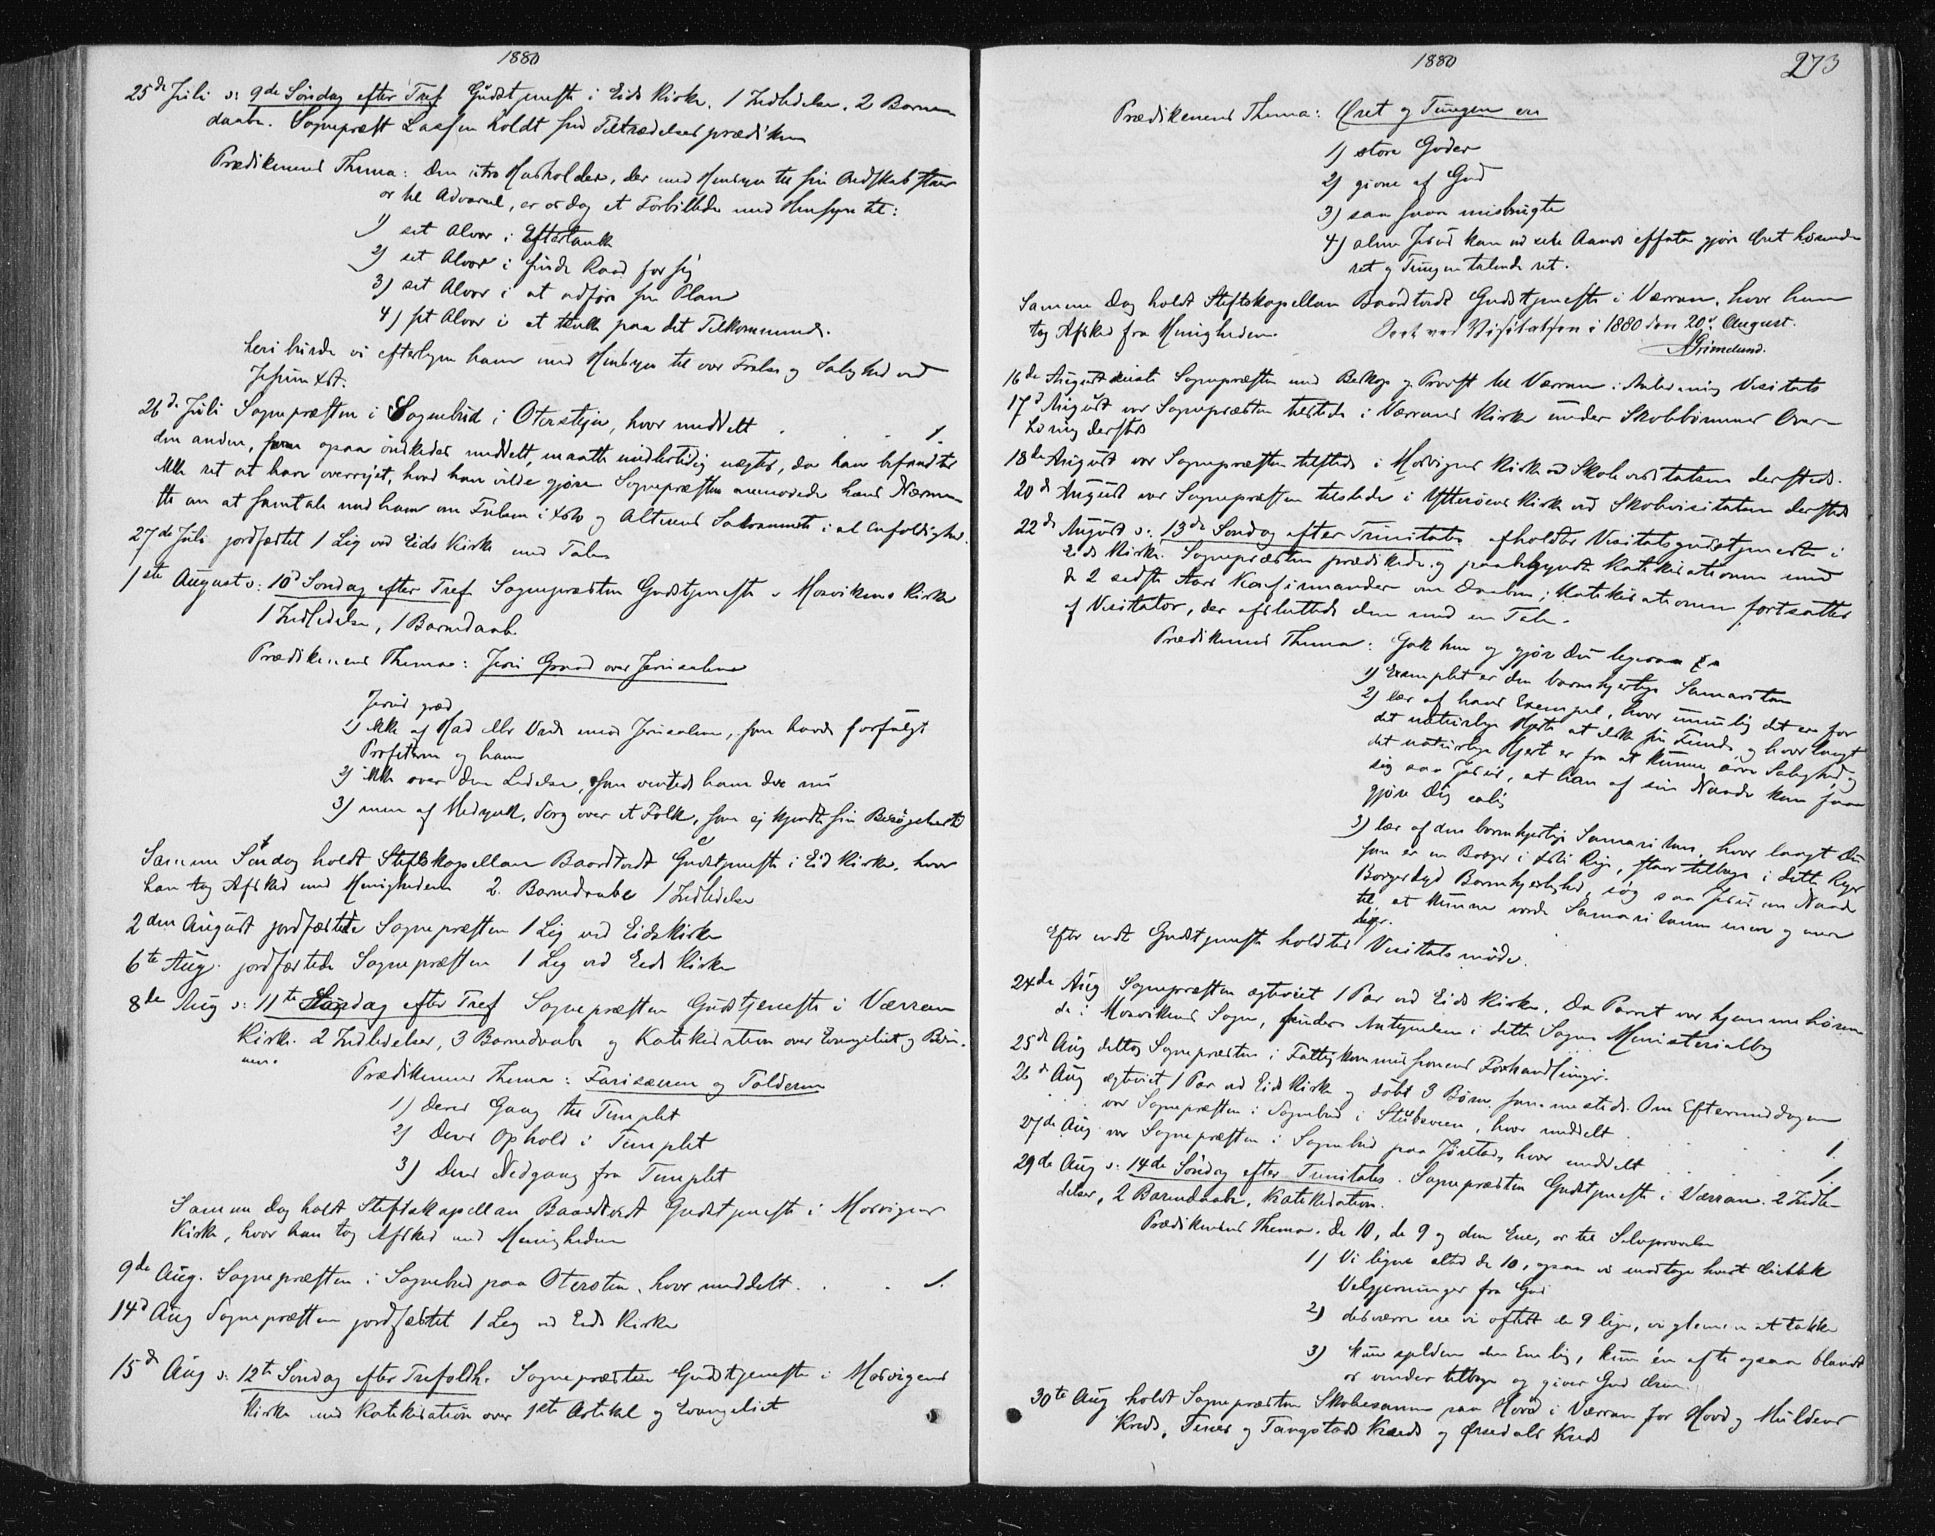 1880
25de Juli s: 9de Søndag efter Tref Gudstjeneste i Eids Kirke. 1 Indledelse. 2 Barne-
daabe. Sognepræst Lassen holdt sin Tiltrædelsesprædiken
Prædikenens Thema: Den utro Husholder, der med Hensyn til sin Ondskab staar
os til Advarsel, er os dog et Forbillede med Hensyn til:
1) sit Alvor i Eftertanke
2) sit Alvor i finde Raad for sig
3) sit Alvor i at udføre sin Plan
4) sit Alvor i at tænke paa det Tilkommende.
heri burde vi efterligne ham med Hensyn til vor Frelse og Salighed ved
Jesum Xst.
26de Juli Sognepræsten i Sognebud i Oterstejen, hvor meddelt . . . 1.
den anden, som ogsaa ønskedes meddelt, maatte midlertidig nægtes, da han befandtes
ikke ret at have overvejet, hvad han vilde gjøre. Sognepræsten anmodede hans Nærme-
ste om at samtale med ham om Frelsen i Xsto og Alterens Sakramente i al Enfoldighed.
27de Juli jordfæstet 1 Lig ved Eids Kirke med Tale
1ste August s: 10d Søndag efter Tref Sognepræsten Gudstjeneste i Mosvikens Kirke
1 Indledelse, 1 Barnedaab
Prædikenens Thema: Jesu Graad over Jerusalem
Jesus græd
1) ikke af Had eller Vrede mod Jerusalem, som havde forfulgt
Profeterne og ham
2) ikke over den Lidelse, som ventede ham der nu
3) men af Medynk, Sorg over et Folk, som ej kjendte sin Besøgelsestid
Samme Søndag holdt Stiftskapellan Baardtvedt Gudstjeneste i Eid Kirke, hvor
han tog Afsked med Menigheden 2 Barnedaabe 1 Indledelse
2den August jordfæstede Sognepræsten 1 Lig ved Eids Kirke
6te Aug. jordfæstede Sognepræsten 1 Lig ved Eids Kirke
8de Aug s: 11te Søndag efter Tref Sognepræsten Gudstjeneste i Værran
Kirke. 2 Indledelser, 3 Barnedaabe og Katekisation over Evangeliet og Bøn-
nen.
Prædikenens Thema: Farisæeren og Tolderen
1) Deres Gang til Templet
2) Deres Ophold i Templet
3) Deres Nedgang fra Templet
Samme Dag holdt Stiftskapellan Baardtvedt Gudstjeneste i Mosvigens
Kirke, hvor han tog Afsked med Menigheden
9de Aug. Sognepræsten i Sognebud paa Oterstein, hvor meddelt . . . 1.
14d Aug Sognepræsten jordfæstet 1 Lig ved Eids Kirke
15d Aug s: 12te Søndag efter Trefoldh. Sognepræsten Gudstjeneste i Mosvigens
Kirke med Katekisation over 1ste Artikel og Evangeliet
1880
273
Prædikenens Thema: Øret og Tungen ere
1) store Goder
2) givne af Gud
3) saa saare misbrugte
4) alene Jesus kan ved sete Aands effata gjøre Øret hørende
ret og Tungen talende ret.
Samme Dag holdt Stiftskapellan Baardtvedt Gudstjeneste i Værran, hvor han
tog Afsked fra Menigheden. Seet ved Visitatsen i 1880 den 20de August.
AGrimelund.
16de August reiste Sognepræsten med Biskop og Provst til Værran i Anledning Visitats
17d August var Sognepræsten tilstede i Værrans Kirke under Skolebørnenes Over-
høring dersteds
18de August var Sognepræsten tilstede i Mosvigens Kirke ved Skolevisitatsen dersteds.
20de August var Sognepræsten tilstede i Ytterøens Kirke ved Skolevisitatsen dersteds
22de August s: 13de Søndag efter Trinitatis afholdtes Visitatsgudstjeneste i
Eids Kirke. Sognepræsten prædikede og paabegyndte Katekisationen med
de 2 sidste Aars Konfirmander om Daaben; Katekisationen fortsattes
af Visitator, der afsluttede den med en Tale.
Prædikenens Thema: Gak hen og gjør Du ligesaa
1) Exemplet er den barmhjertige Samaritan
2) lær af hans Exempel, hvor umulig det er for
det naturlige Hjerte at elske sin Fiende, og hvor langt
det naturlige Hjerte er fra at kunne arve Salighed, og
sig saa Jesus, at han af sin Naade kan faa
gjøre Dig salig
3) lær af den barmhjertige Samaritan, hvor langt Du
som er en Borger i Xsti Rige, staar tilbage i dette Riges
Borgerdyd Barmhjertighed, søg saa Jesus om Naade
til, at kunne vorde Samaritanen mere og mere
lig.
Efter endt Gudstjeneste holdtes Visitatsmøde.
24de Aug Sognepræsten ægteviet 1 Par ved Eids Kirke. Da Parret var hjemmehøren-
de i Mosvikens Sogn, findes Antegnelsen i dette Sogns Ministerialbog
25d Aug deltog Sognepræsten i Fattigkommissionens Forhandlinger.
26d Aug ægteviet 1 Par ved Eids Kirke og døbt 3 Børn sammesteds. Om Eftermiddagen
var Sognepræsten i Sognebud i Stubsveen, hvor meddelt . . . 1.
27de Aug. var Sognepræsten i Sognebud paa Jørstad, hvor meddelt . . . 1.
29de Aug s: 14de Søndag efter Trinitatis. Sognepræsten Gudstjeneste i Værran. 2 Indle-
delser, 2 Barnedaabe, Katekisation.
Prædikenens Thema. De 10, de 9 og den Ene, os til Selvprøvelse
1) Vi ligne altid de 10, ogsaa vi modtage hvert Øieblik
Velgjerninger fra Gud
2) desværre ere vi oftest de 9 lige, vi glemme at takke
3) kun sjelden den Ene lig, kun én ofte ogsaa blandt
os vender tilbage og giver Gud Æren.
30te Aug holdt Sognepræsten Skoleexamen paa Hovd i Værran for Hovd og Muldens
Kreds, Fines og Tangstads Kreds og Ørsedals Kreds